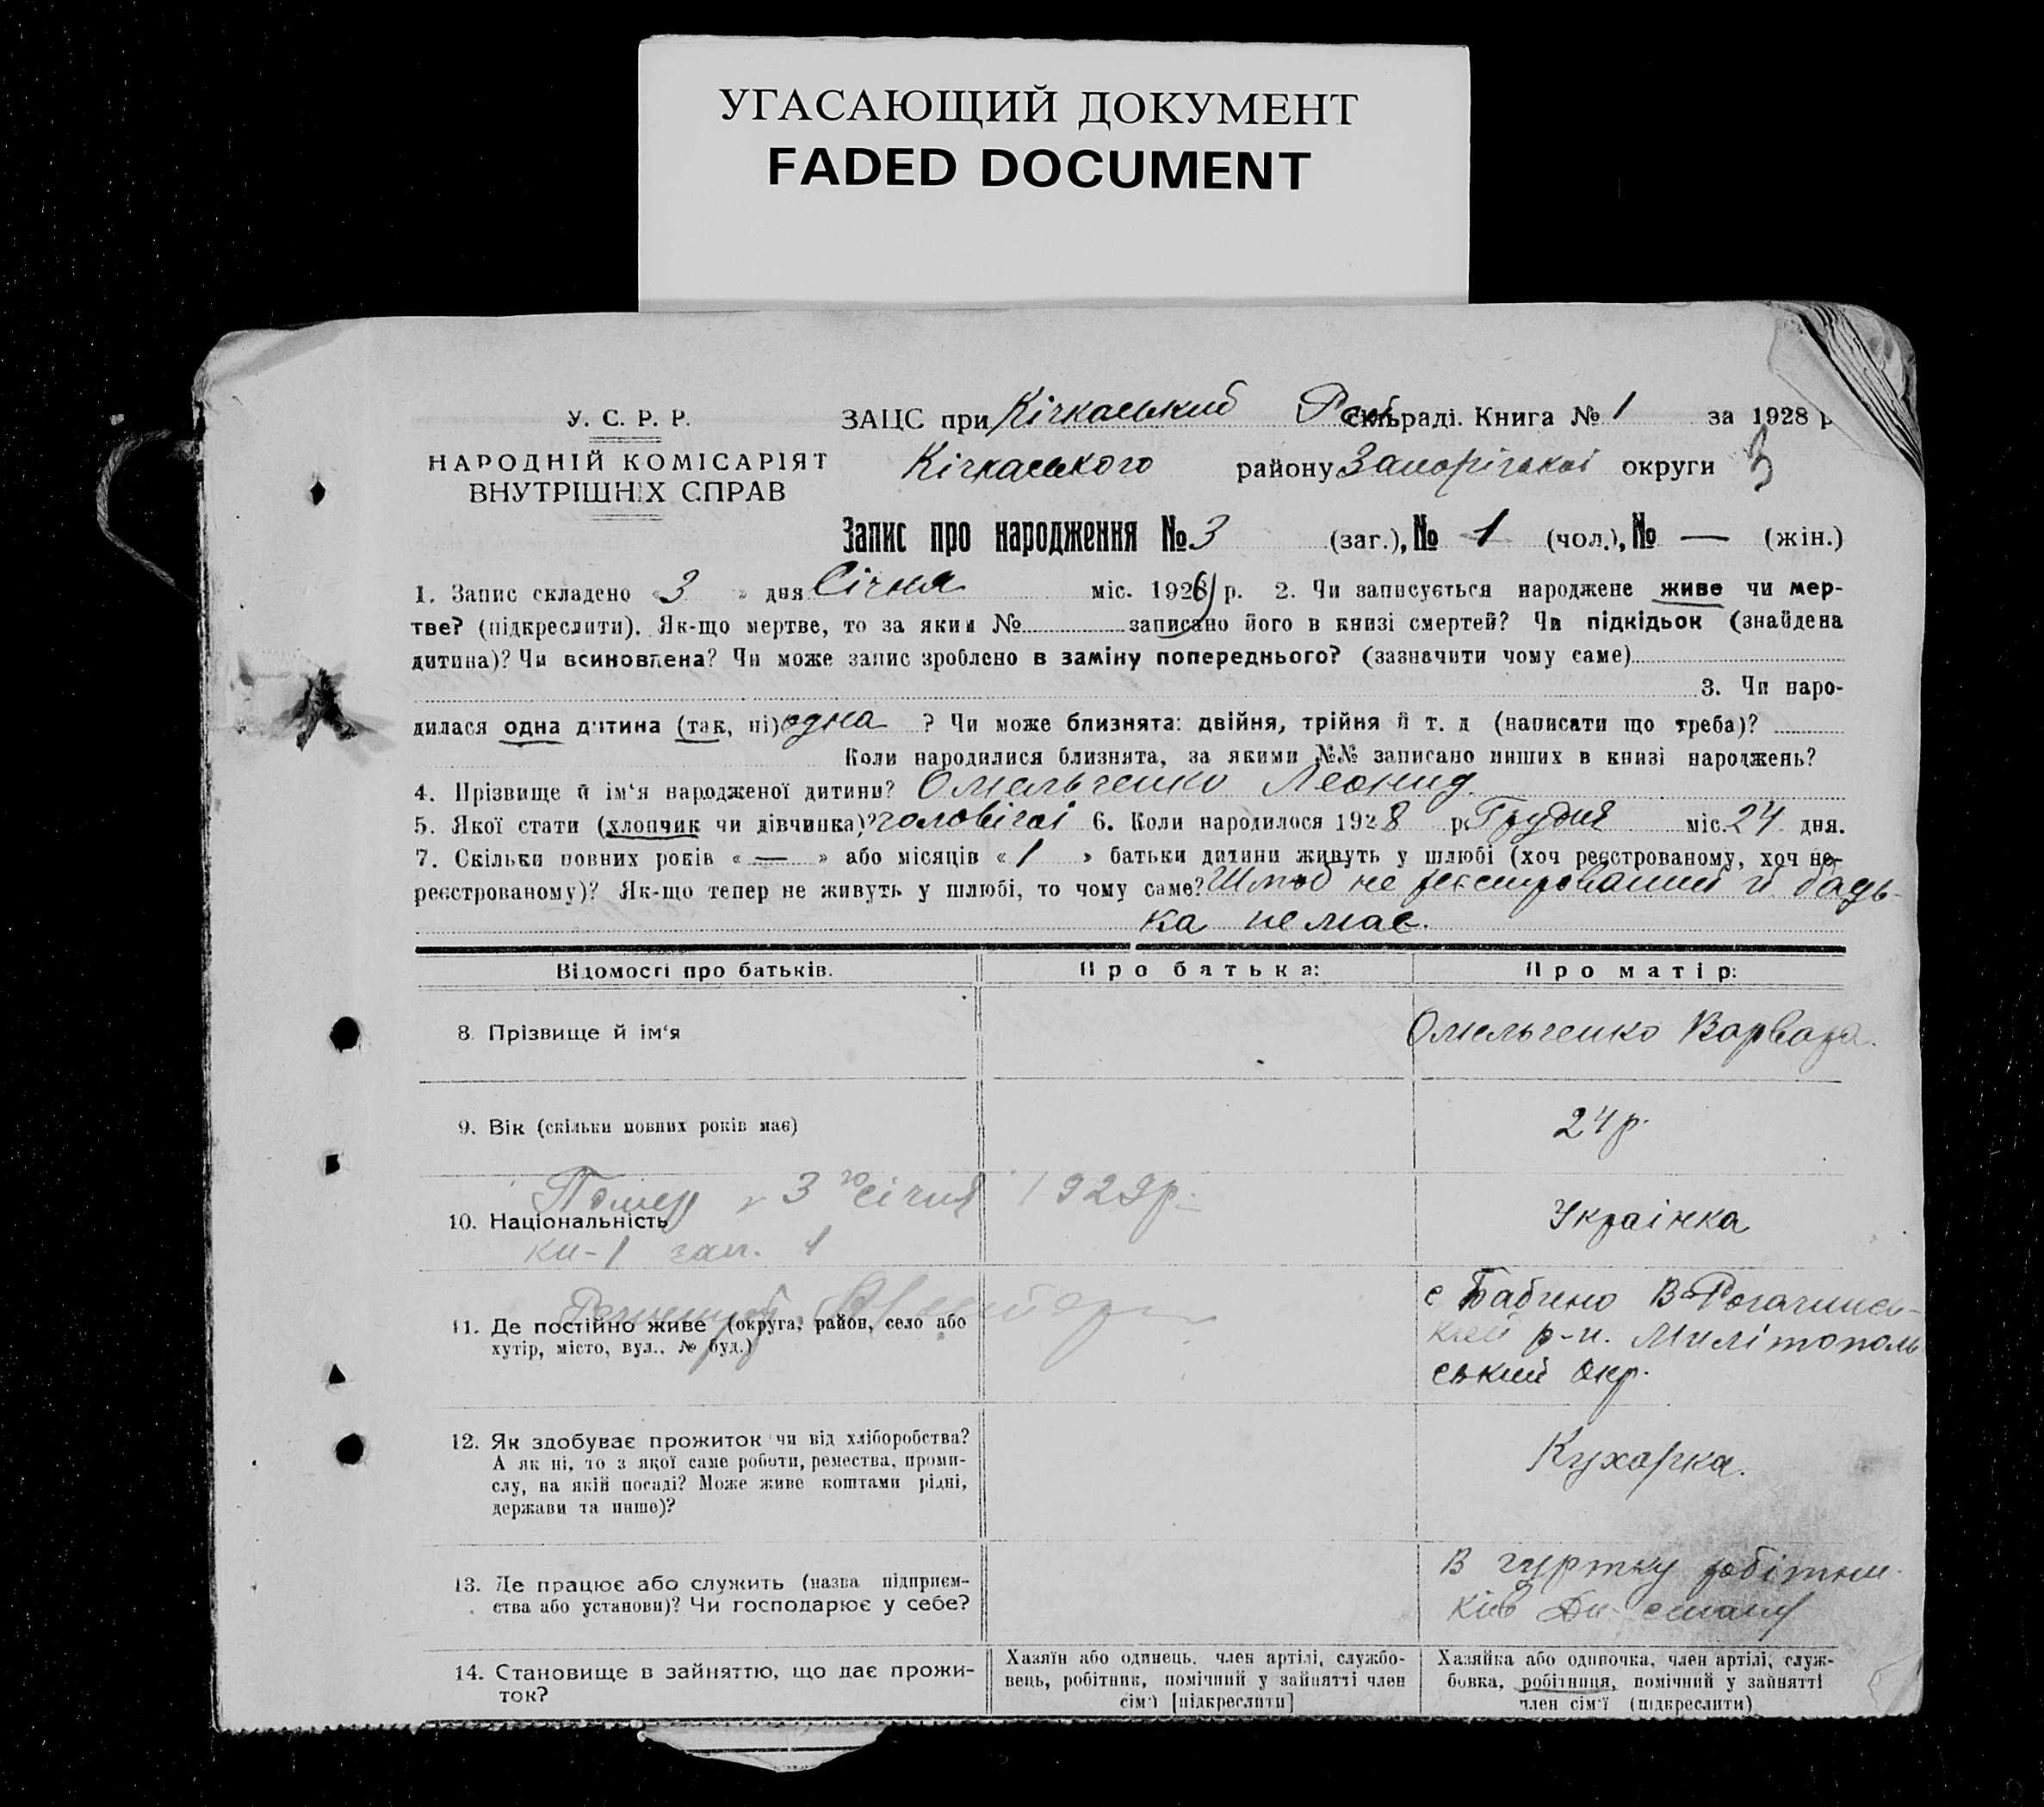 УГАСАЮЩИЙ ДОКУМЕНТ
FADED DOCUMENT
У. С. Р. Р.
НАРОДНІЙ КОМІСАРІЯТ
ВНУТРІШНІХ СПРАВ
ЗАЦС при Кічкаський раді. Книга № 1 за 1928 р
Кічкаського району Запорізької округи
3
Запис про народження № 3 (заг.), № 1 (чол.), № — (жін.)
1. Запис складено «3» дня Січня міс. 192 р. 2. Чи записується народжене живе чи мер-
тве? (підкреслити). Як-що мертве, то за яким № записано його в книзі смертей? Чи підкідьок (знайдена
дитина)? Чи всиновлена? Чи може запис зроблено в заміну попереднього? (зазначити чому саме)
3. Чи наро-
дилася одна дитина (так, ні) одна ? Чи може близнята: двійня, трійня й т. д (написати що треба)?
Коли народилися близнята, за якими №№ записано инших в книзі народжень?
4. Прізвище й ім'я народженої дитини? Омельченко Леонид.
5. Якої стати (хлопчик чи дівчинка)? чоловічої 6. Коли народилося 1928 р. Грудня міс. 24 дня.
7. Скільки повних років « — » або місяців « 1 » батьки дитини живуть у шлюбі (хоч реєстрованому, хоч не-
реєстрованому)? Як-що тепер не живуть у шлюбі, то чому саме? Шлюб не реєстрований й бадь-
ка немає.
Відомості про батьків. Про батька: Про матір:
8. Прізвище й ім'я Омельченко Варвара.
9. Вік (скільки повних років має) 24 р.
Помер 3го січня 1929 р.
10. Національність Українка
кн-1 зап. 1
11. Де постійно живе (округа, район, село або
хутір, місто, вул., № буд.)
с Бабино В Рогачинсь-
кий р-н. Милітополь
ський окр.
12. Як здобуває прожиток чи від хліборобства?
А як ні, то з якої саме роботи, ремества, проми-
слу, на якій посаді? Може живе коштами рідні,
держави та инше)?
Кухарка.
13. Де працює або служить (назва підприєм-
ства або установи)? Чи господарює у себе?
В гуртку робітни-
ків
14. Становище в зайняттю, що дає прожи-
ток?
Хазяїн або одинець, член артілі, службо-
вець, робітник, помічний у зайнятті член
сім'ї [підкреслити]
Хазяйка або одиночка, член артілі, служ-
бовка, робітниця, помічний у зайнятті
член сім'ї (підкреслити)